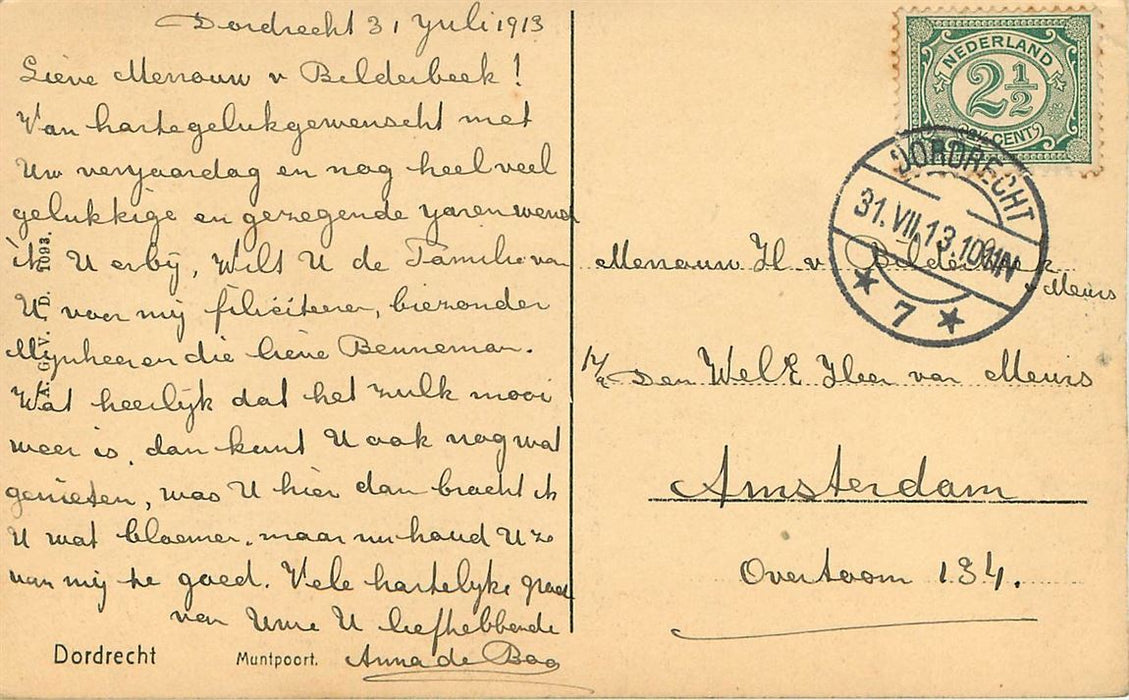 Dordrecht 31 Yuli 1913
Lieve Mevrouw v Bilderbeek!
Van harte gelukgewenscht met
Uw verjaardag en nog heel veel
gelukkige en gezegende yaren wensch
ik U erbij, Wilt U de Familie van
U voor mij feliciteeren, biezonder
Mijnheer en die lieve Benneman.
Wat heerlijk dat het zulk mooi
weer is, dan kunt U ook nog wat
genieten, was U hier dan bracht ik
U wat bloemen, maar nu houd U ze
van mij te goed. Vele hartelijke
van Uwe U liefhebbende
Anna de
Dordrecht Muntpoort.
A. G. V. D. 1093.
NEDERLAND
2½
CENT
DORDRECHT
31.VII.13.10
7
Mevrouw H. v Bilderbeek
Meurs
Den WelE Heer van Meurs
Amsterdam
Overtoom 134.